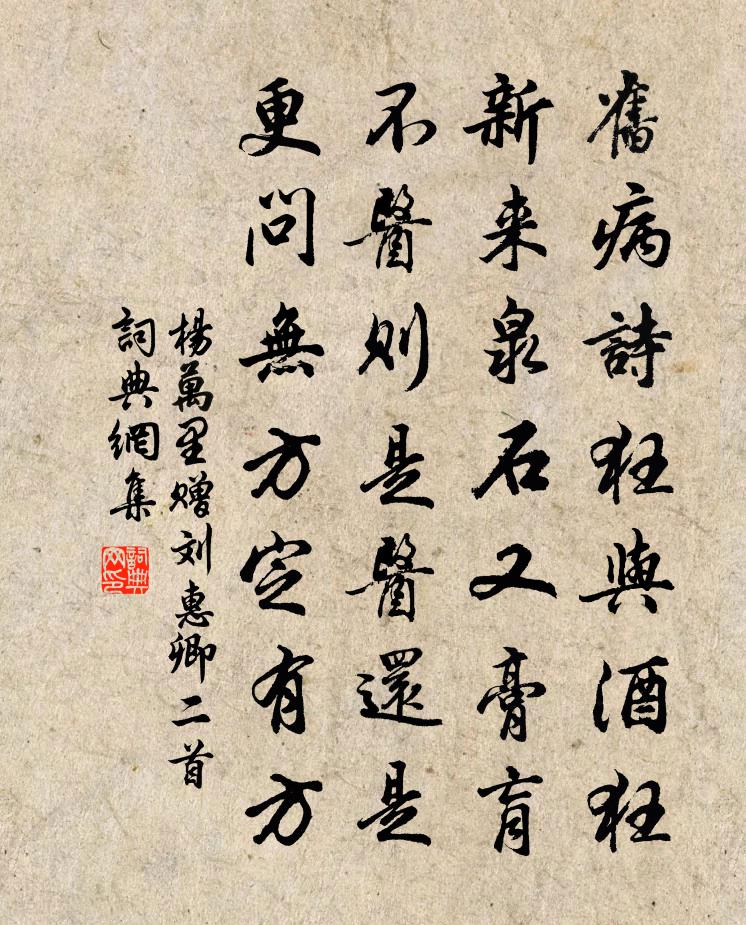 舊病詩狂與酒狂
新来泉石又膏肓
不醫則是醫還是
更問無方定有方
楊萬里贈刘惠卿二首
詞典網集
詞典网印